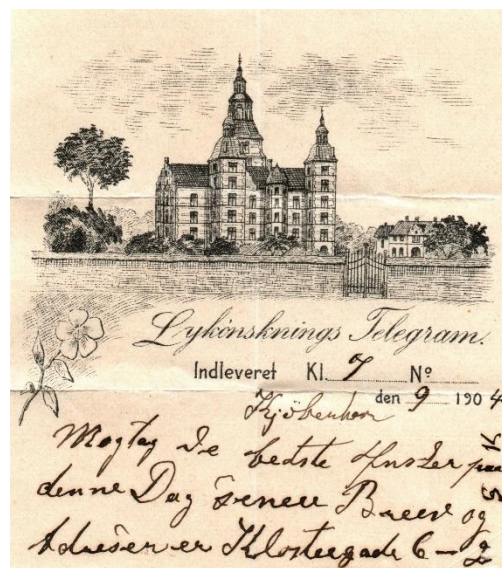 Lykönsknings Telegram.
Indleveret Kl. 7 No
den 9 1904
Kjöbenhavn
Modtag De bedste Ønsker paa
denne Dag Breev og
Adresen er Klostergade 6